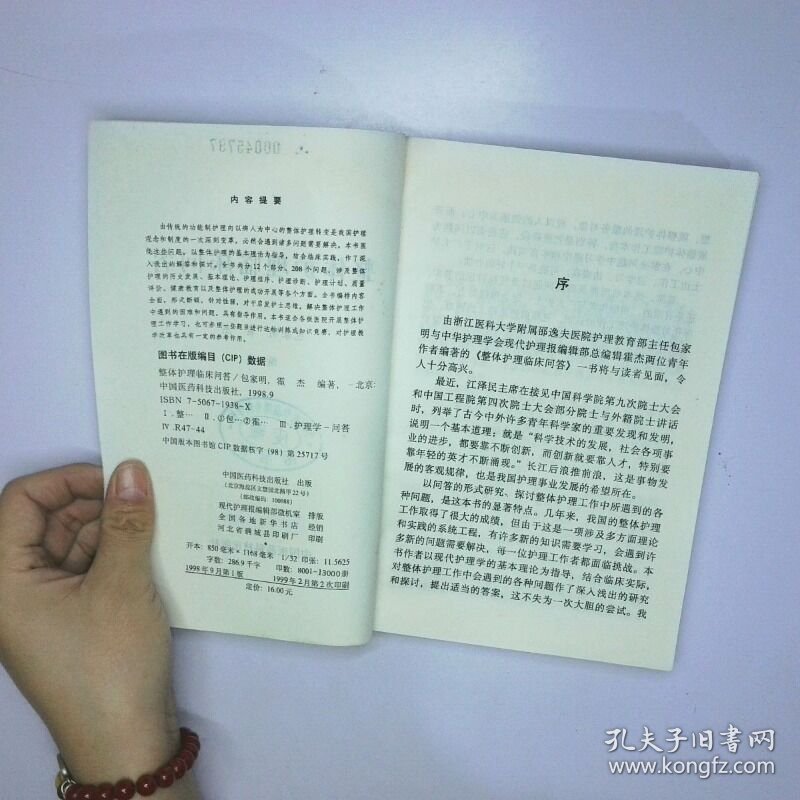 内容提要
由传统的功能制护理向以病人为中心的整体护理转变是我国护理
观念和制度的一次深刻变革，必然会遇到诸多问题需要解决。本书围
绕这些问题，以整体护理的基本理论为指导，结合临床实践，作了深
入浅出的解答和探讨。全书共分12个部分、208个问题，涉及整体
护理的历史发展、基本理论、护理程序、护理诊断、护理计划、质量
评价、健康教育以及整体护理的成功开展等各个方面。全书编排内容
全面，形式新颖，针对性强，对于启发护士思维，解决整体护理工作
中遇到的困难和问题，具有指导作用。本书适合各级医院开展整体护
理工作学习，也可参照一些题目进行达标训练或知识竞赛，对护理教
学改革也具有一定的参考作用。
图书在版编目（CIP）数据
整体护理临床问答/包家明，霍 杰 编著，-北京：
中国医药科技出版社，1998.9
ISBN 7-5067-1938-X
Ⅰ.整… Ⅱ.①包…②霍… Ⅲ.护理学-问答
Ⅳ.R47-44
中国版本图书馆CIP数据核字（98）第25717号
中国医药科技出版社 出版
（北京海淀区文慧园北路甲22号）
（邮政编码 100088）
现代护理报编辑部微机室 排版
全国各地新华书店 经销
河北省满城县印刷厂 印刷
开本：850毫米×1168毫米 1/32 印张：11.5625
字数：286.9千字 印数：8001-13000册
1998年9月第1版 1999年2月第2次印刷
定价：16.00元
序
由浙江医科大学附属邵逸夫医院护理教育部主任包家
明与中华护理学会现代护理报编辑部总编辑霍杰两位青年
作者编著的《整体护理临床问答》一书将与读者见面，令
人十分高兴。
最近，江泽民主席在接见中国科学院第九次院士大会
和中国工程院第四次院士大会部分院士与外籍院士讲话
时，列举了古今中外许多青年科学家的重要发现和发明，
说明一个基本道理：就是“科学技术的发展，社会各项事
业的进步，都要靠不断创新，而创新就要靠人才，特别要
靠年轻的英才不断涌现。”长江后浪推前浪，这是事物发
展的客观规律，也是我国护理事业发展的希望所在。
以问答的形式研究、探讨整体护理工作中所遇到的各
种问题，是这本书的显著特点。几年来，我国的整体护理
工作取得了很大的成绩，但由于这是一项涉及多方面理论
和实践的系统工程，有许多新的知识需要学习，会遇到许
多新的问题需要解决，每一位护理工作者都面临挑战。本
书作者以现代护理学的基本理论为指导，结合临床实际，
对整体护理工作中会遇到的各种问题作了深入浅出的研究
和探讨，提出适当的答案，这不失为一次大胆的尝试。我
孔夫子旧书网
www.kongfz.com